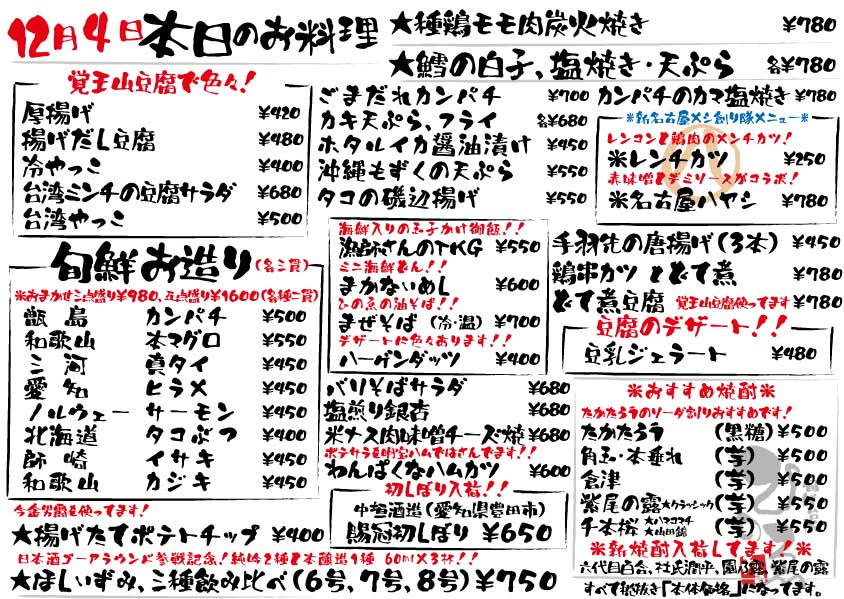 12月4日 本日のお料理
★種鶏モモ肉炭火焼き ¥780
★鱈の白子、塩焼き・天ぷら 各¥780
覚王山豆腐で色々!
厚揚げ ¥420
揚げだし豆腐 ¥480
冷やっこ ¥400
台湾ミンチの豆腐サラダ ¥680
台湾やっこ ¥500
ごまだれカンパチ ¥700
カキ天ぷら、フライ 各¥680
ホタルイカ醤油漬け ¥450
沖縄もずくの天ぷら ¥550
タコの磯辺揚げ ¥550
カンパチのカマ塩焼き ¥780
※新名古屋メシ創り隊メニュー※
レンコンと鶏肉のメンチカツ!
米レンチカツ ¥250
赤味噌とデミソースがコラボ!
米名古屋ハヤシ ¥780
旬鮮お造り(各三貫)
※おまかせ三点盛り¥980、五点盛り¥1600(各種二貫)
甑島 カンパチ ¥500
和歌山 本マグロ ¥550
三河 真タイ ¥450
愛知 ヒラメ ¥450
ノルウェー サーモン ¥450
北海道 タコぶつ ¥400
師崎 イサキ ¥450
和歌山 カジキ ¥450
海鮮入りの玉子かけ御飯!!
漁師さんのTKG ¥550
ミニ海鮮どん!!
まかないめし ¥600
ひの魚の油そば!!
まぜそば(冷・温) ¥700
デザートに色々あります!!
ハーゲンダッツ ¥400
バリそばサラダ ¥680
塩煎り銀杏 ¥680
米ナス肉味噌チーズ焼 ¥680
ポテサラを明宝ハムではさんでます!!
わんぱくなハムカツ ¥600
初しぼり入荷!!
中垣酒造(愛知県豊田市)
賜冠初しぼり ¥650
手羽先の唐揚げ(3本) ¥450
鶏串カツ とどて煮 ¥780
どて煮豆腐 覚王山豆腐使ってます ¥780
豆腐のデザート!!
豆乳ジェラート ¥480
※おすすめ焼酎※
たかたろうのソーダ割りおすすめです!
たかたろう (黒糖) ¥500
角玉・本垂れ (芋) ¥500
倉津 (芋) ¥500
紫尾の露 大クラッシック (芋) ¥550
千本桜 大ハマコマチ 大山田錦 (芋) ¥550
※新焼酎入荷してます!※
六代目百合、社氏潤平、園乃露、紫尾の露
すべて税抜き「本体価格」になってます。
今金男爵を使ってます!
★揚げたてポテトチップ ¥400
日本酒ゴーアラウンド参戦記念!純吟2種と本醸造1種 60ml×3杯!!
★ほしいずみ、三種飲み比べ(6号、7号、8号) ¥750